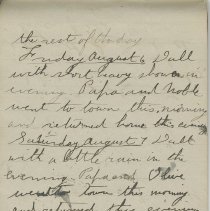 the rest of
Friday August 6 Dull
with short heavy showers in
evening Papa and Noble
went to town this morning
and returned home this evening
Saturday August 7 Dull
with a little rain in the
evening. Papa and I
went to town this morning
and returned this evening